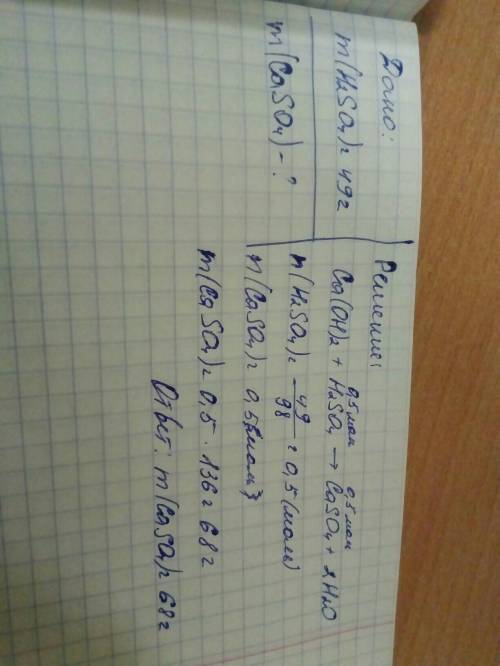 Дано:
m(H₂SO₄) = 49 г
m(CaSO₄) - ?
Решение:
0,5 моль 0,5 моль
Ca(OH)₂ + H₂SO₄ → CaSO₄ + 2H₂O
n(H₂SO₄) = 49/98 = 0,5 (моль)
n(CaSO₄) = 0,5 (моль)
m(CaSO₄) = 0,5 · 136 = 68 г
Ответ: m(CaSO₄) = 68 г